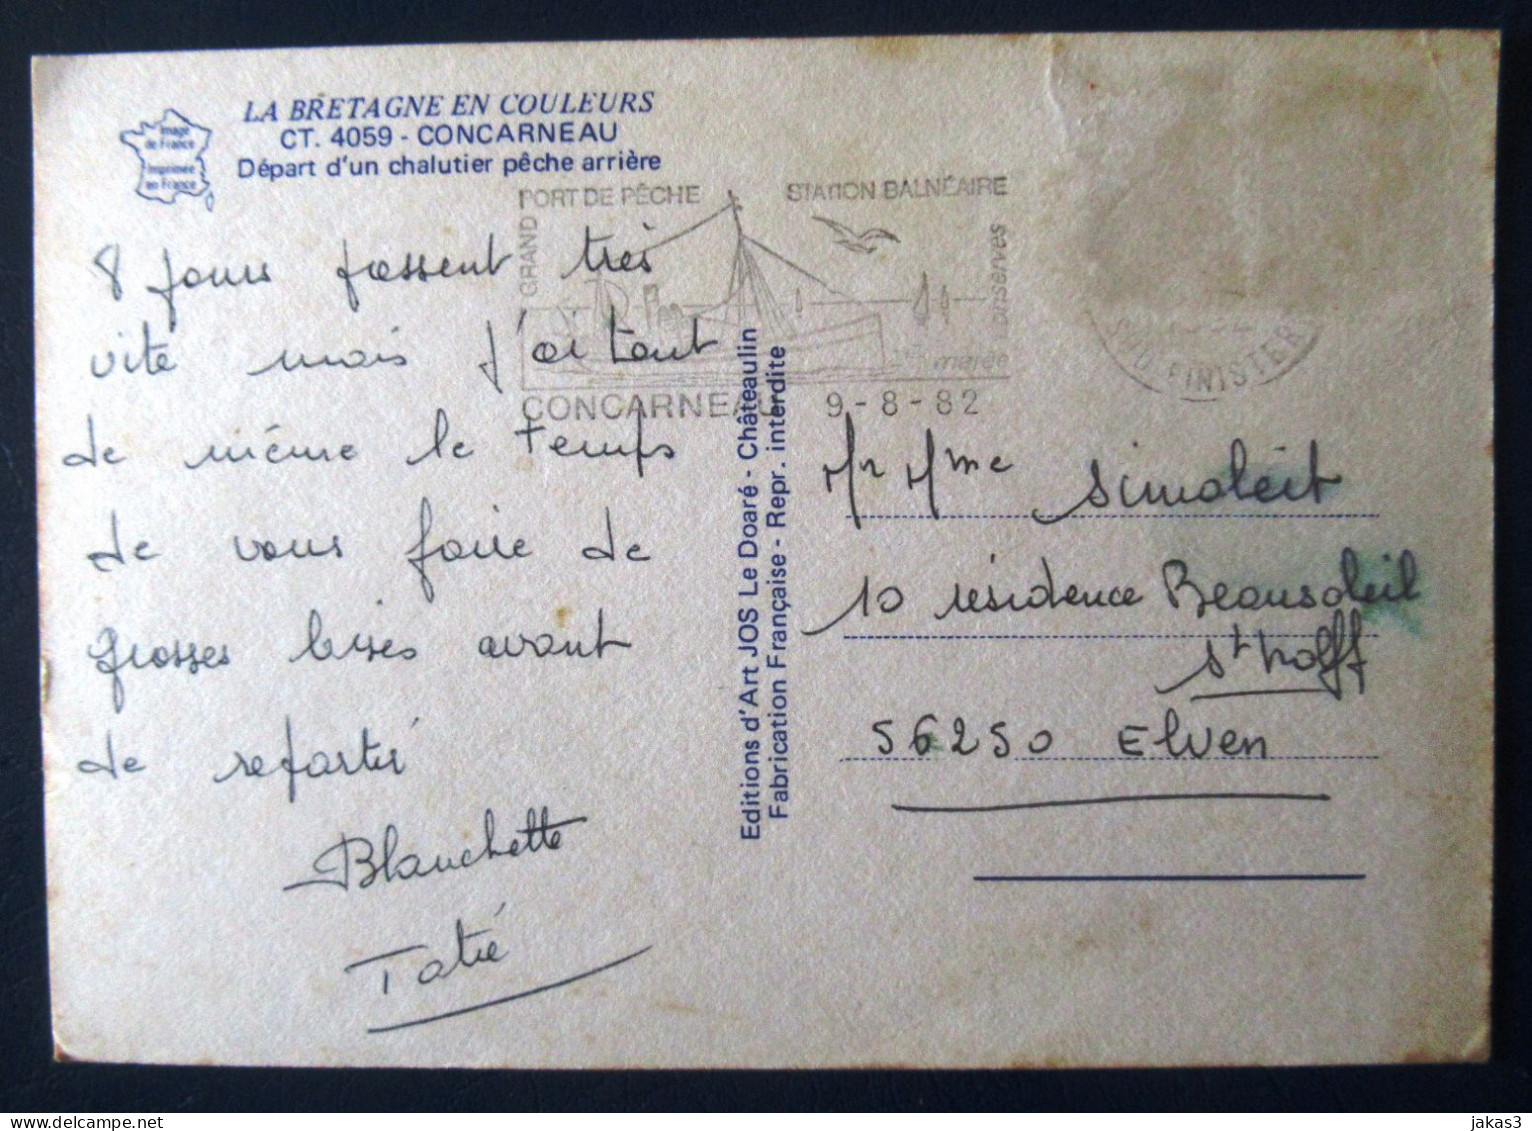 LA BRETAGNE EN COULEURS
CT. 4059 - CONCARNEAU
Départ d'un chalutier pêche arrière
Image
de France
Imprimée
en France
GRAND PORT DE PÊCHE STATION BALNÉAIRE
conserves
marée
CONCARNEAU 9-8-82
SUD FINISTER
8 jours passent très
vite mais j'ai tout
de même le temps
de vous faire de
grosses bises avant
de repartir
Blanchette
Tatie
Editions d'Art JOS Le Doaré - Châteaulin
Fabrication Française - Repr. interdite
Mr Mme Simoleit
10 résidence Beausoleil
St Nolff
56250 Elven
delcampe.net
jakas3